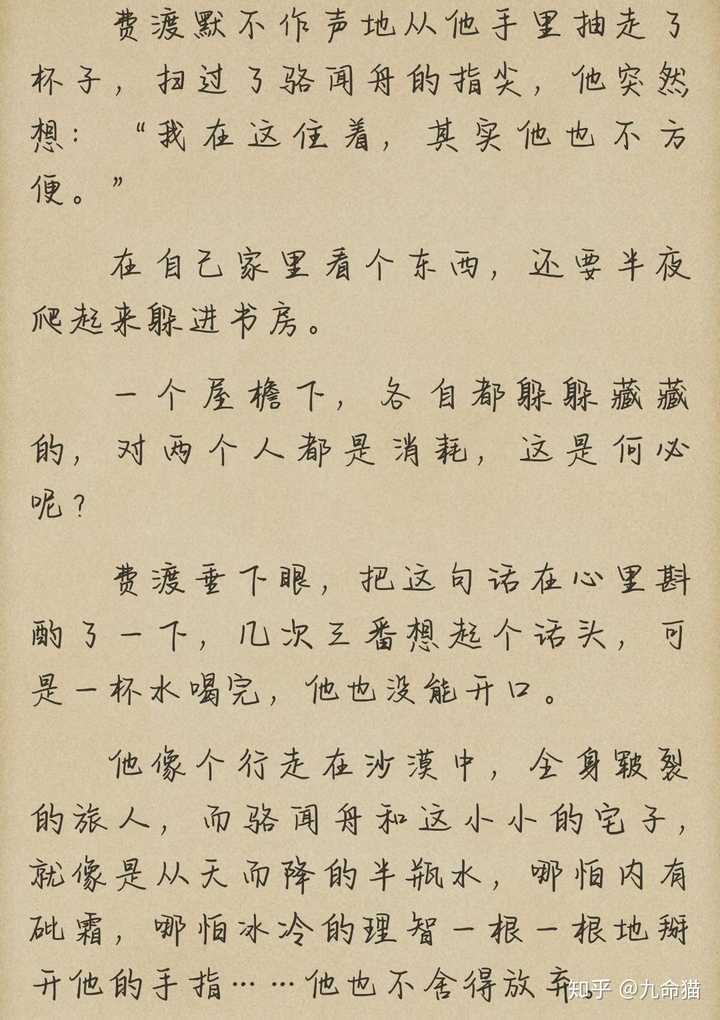 费渡默不作声地从他手里抽走了
杯子，扫过了骆闻舟的指尖，他突然
想：“我在这住着，其实他也不方
便。”
在自己家里看个东西，还要半夜
爬起来躲进书房。
一个屋檐下，各自都躲躲藏藏
的，对两个人都是消耗，这是何必
呢？
费渡垂下眼，把这句话在心里斟
酌了一下，几次三番想起个话头，可
是一杯水喝完，他也没能开口。
他像个行走在沙漠中，全身皲裂
的旅人，而骆闻舟和这小小的宅子，
就像是从天而降的半瓶水，哪怕内有
砒霜，哪怕冰冷的理智一根一根地掰
开他的手指……他也不舍得放弃。
知乎 @九命猫